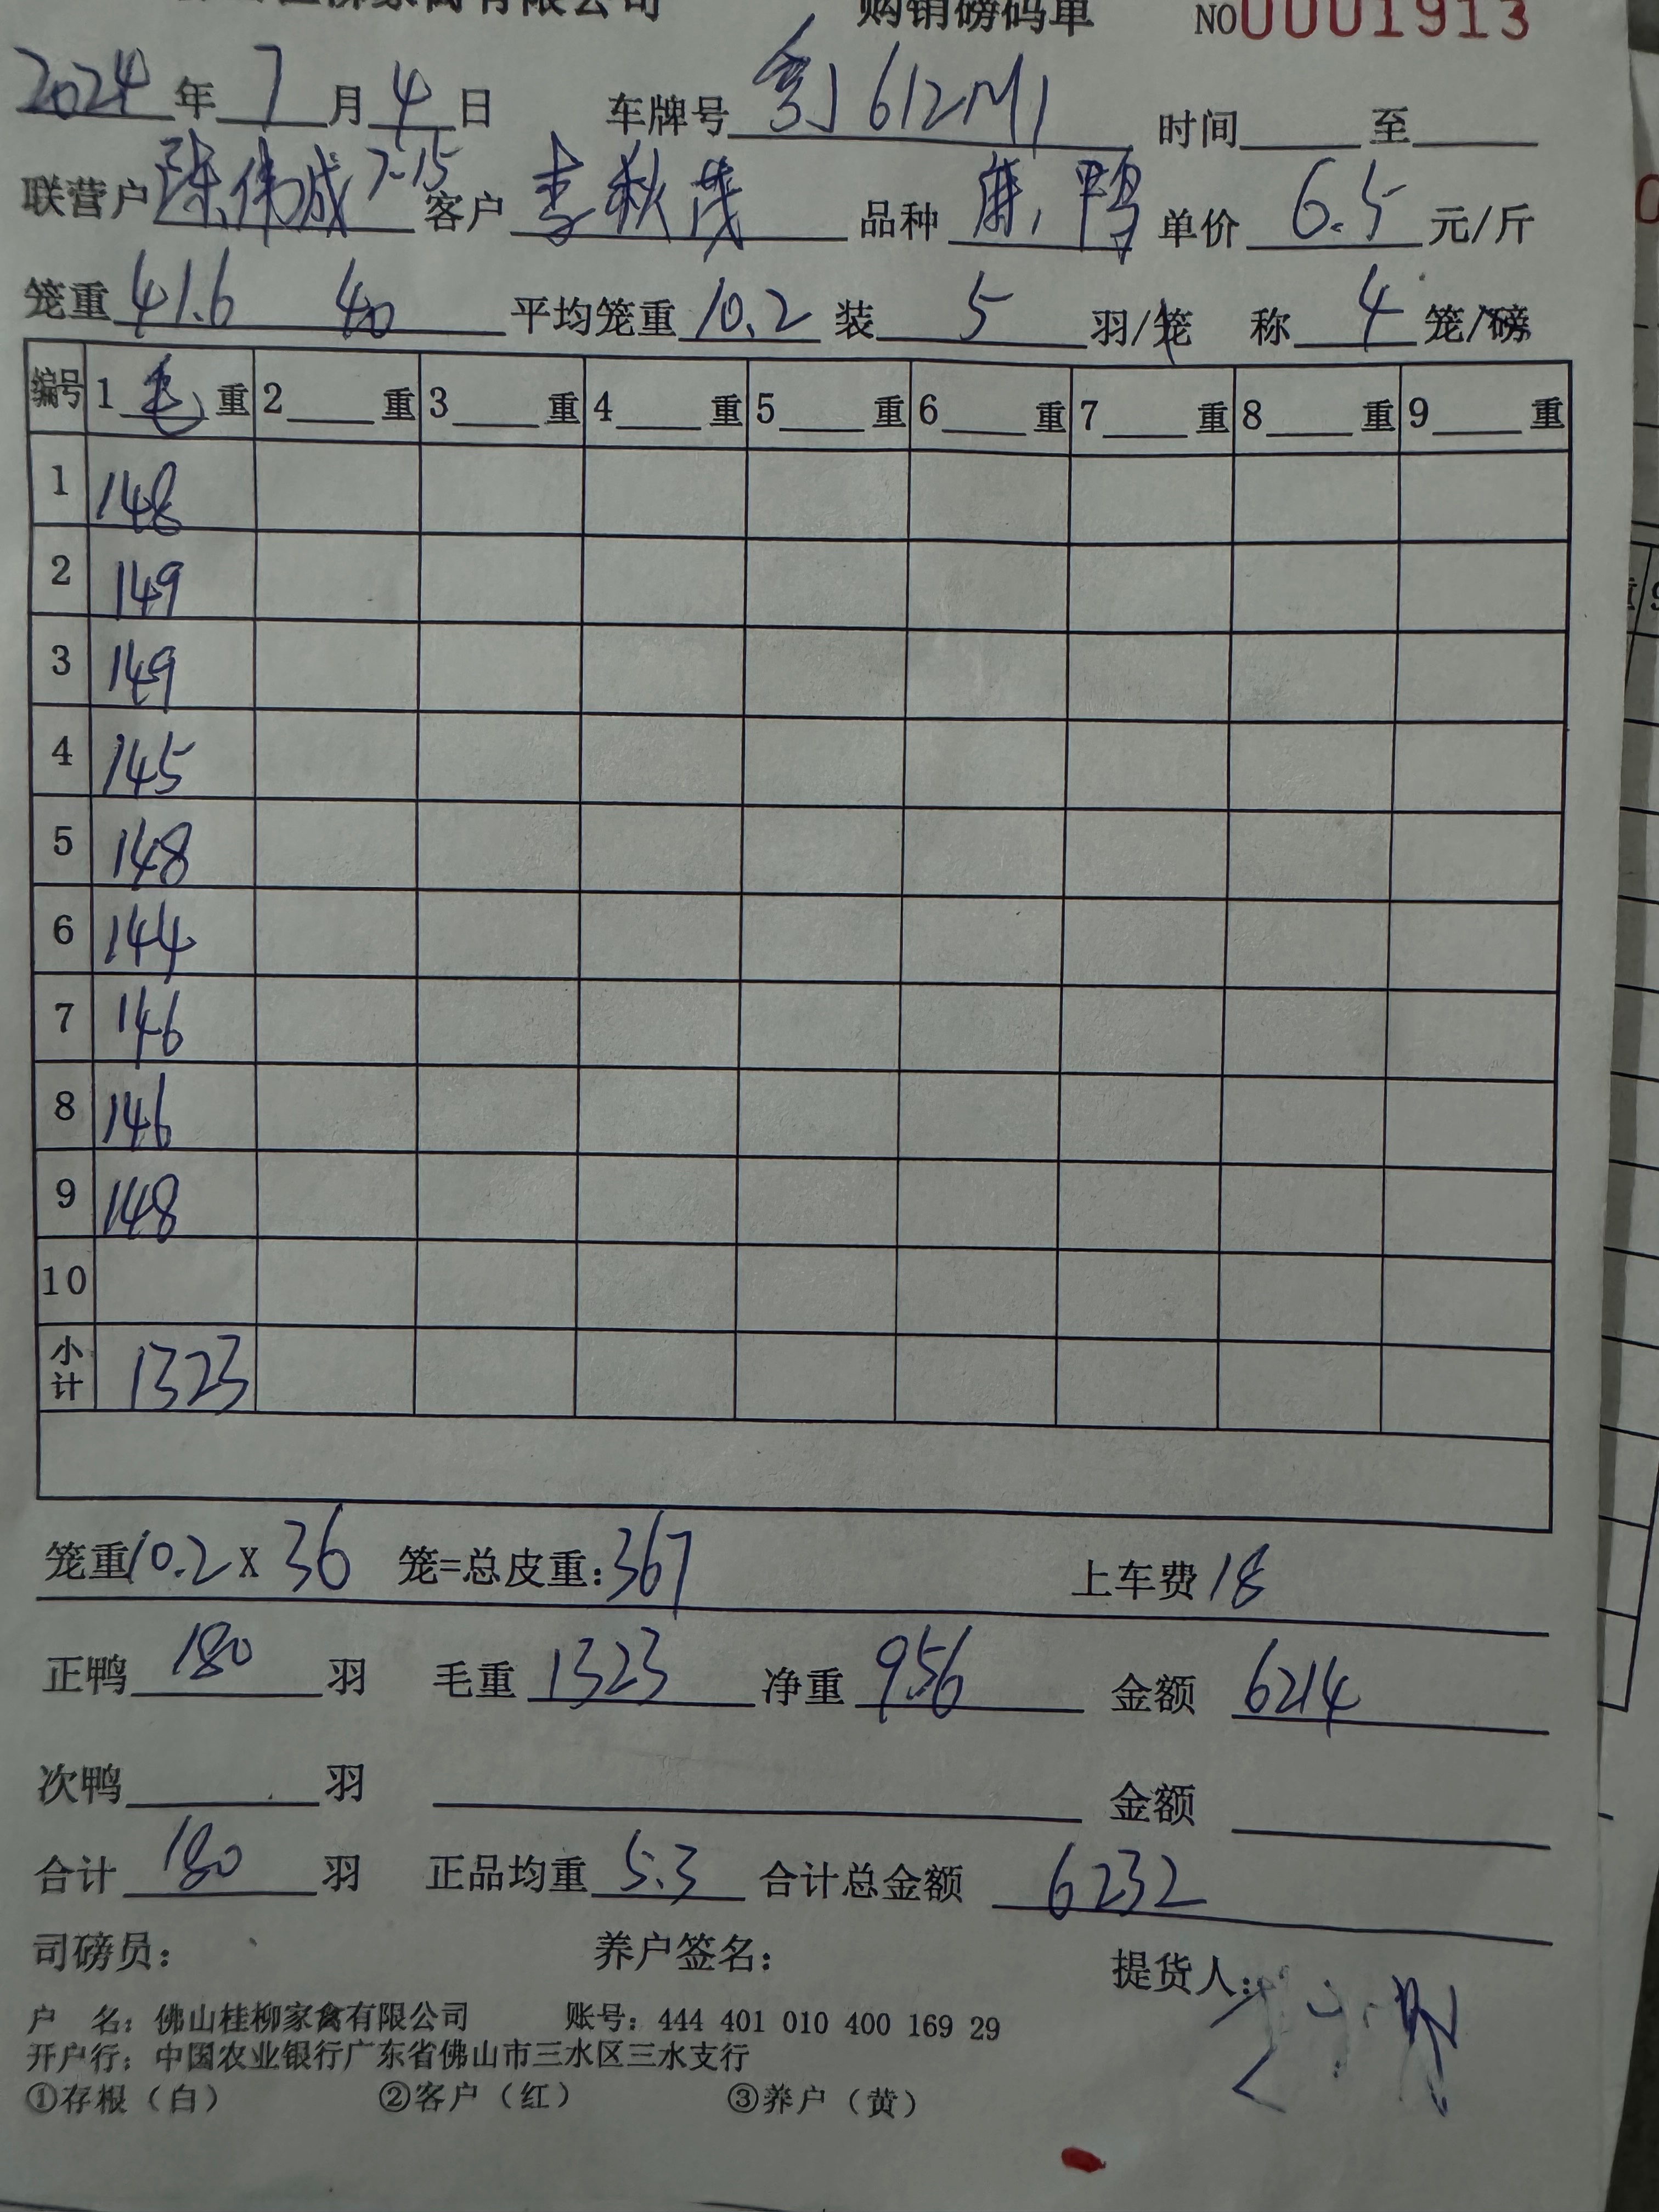 佛山桂柳家禽有限公司 购销磅码单 NO0001913
2024年7月4日 车牌号 粤J612M1 时间 至
联营户 陈伟成 7-15 客户 李秋茂 品种 麻鸭 单价 6.5 元/斤
笼重 41.6 40 平均笼重 10.2 装 5 羽/笼 称 4 笼/磅
编号 1 毛 重 2 重 3 重 4 重 5 重 6 重 7 重 8 重 9 重
1 148
2 149
3 149
4 145
5 148
6 144
7 146
8 146
9 148
10
小计 1323
笼重10.2X 36 笼=总皮重:367 上车费 18
正鸭 180 羽 毛重 1323 净重 956 金额 6214
次鸭 羽 金额
合计 180 羽 正品均重 5.3 合计总金额 6232
司磅员: 养户签名: 提货人:
户 名: 佛山桂柳家禽有限公司 账号: 444 401 010 400 169 29
开户行: 中国农业银行广东省佛山市三水区三水支行
①存根(白) ②客户(红) ③养户(黄)